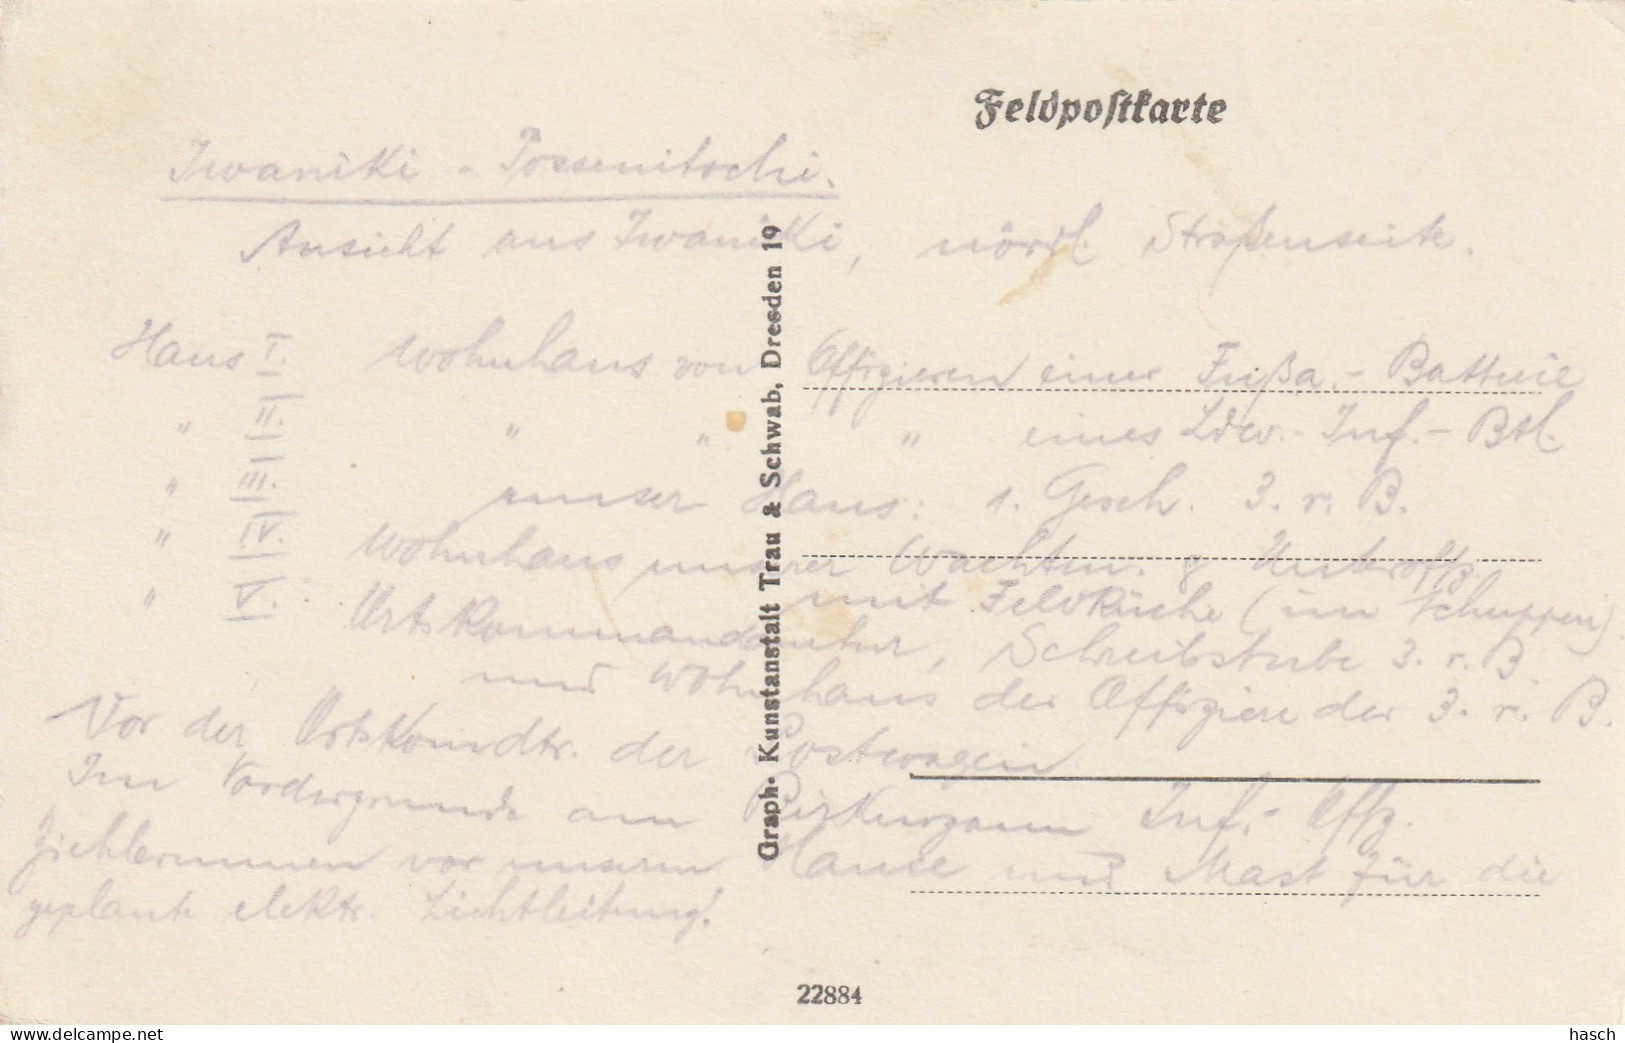 Feldpostkarte
Iwaniki - Possenitschi.
Ansicht aus Iwaniki, nördl. Straßenseite.
Haus I. Wohnhaus von Offizieren einer Fußa.- Batterie
" II. " " " eines Ldw.- Inf.- Btl.
" III. unser Haus: 1. Gesch. 3. r. B.
" IV. Wohnhaus unserer Wachtm. & Unteroffz.
mit Feldküche (im Schuppen)
" V. Ortskommandantur, Schreibstube 3. r. B
und Wohnhaus der Offiziere der 3. r. B.
Vor der Ortskomdtr. der Postwagen
Im Vordergrunde am Birkenzaun Inf.- Offz.
Ziehbrunnen vor unserm Hause und Mast für die
geplante elektr. Lichtleitung.
Graph. Kunstanstalt Trau & Schwab, Dresden 19
22884
www.delcampe.net
hasch